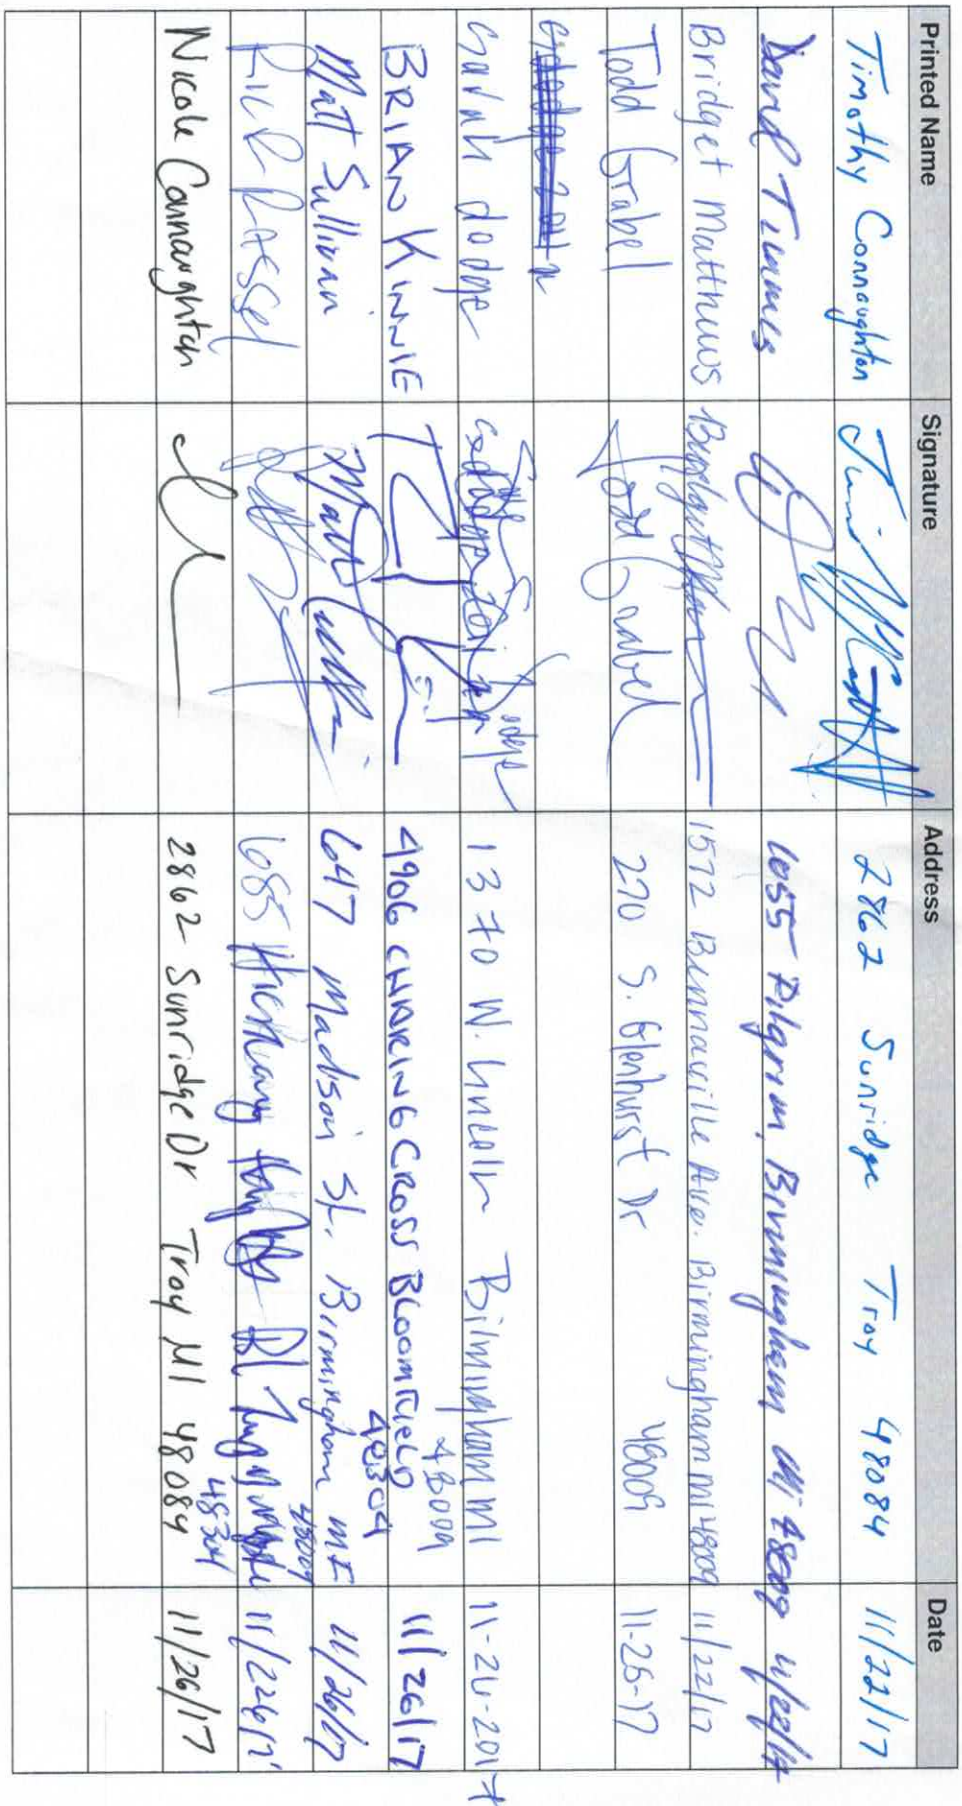 Printed Name Signature Address Date
Timothy Connaughton 2862 Sunridge Troy 48084 11/22/17
David Timmes 1055 Pilgrim, Birmingham Mi 48009 11/22/17
Bridget Matthews 1572 Bennaville Ave. Birmingham mi 48009 11/22/17
Todd Grabel Todd Grabel 270 S. Glenhurst Dr 48009 11-26-17
Sarah dodge 1370 W. Lincoln Bilmingham mi 48009 11-26-2017
BRIAN KINNIE 4906 CHARING CROSS BLOOMFIELD 48304 11/26/17
Matt Sullivan Matt Sullivan 647 Madison St. Birmingham MI 48009 11/26/17
Rick Rassel 48304 11/26/17
Nicole Connaughton 2862 Sunridge Dr Troy MI 48084 11/26/17